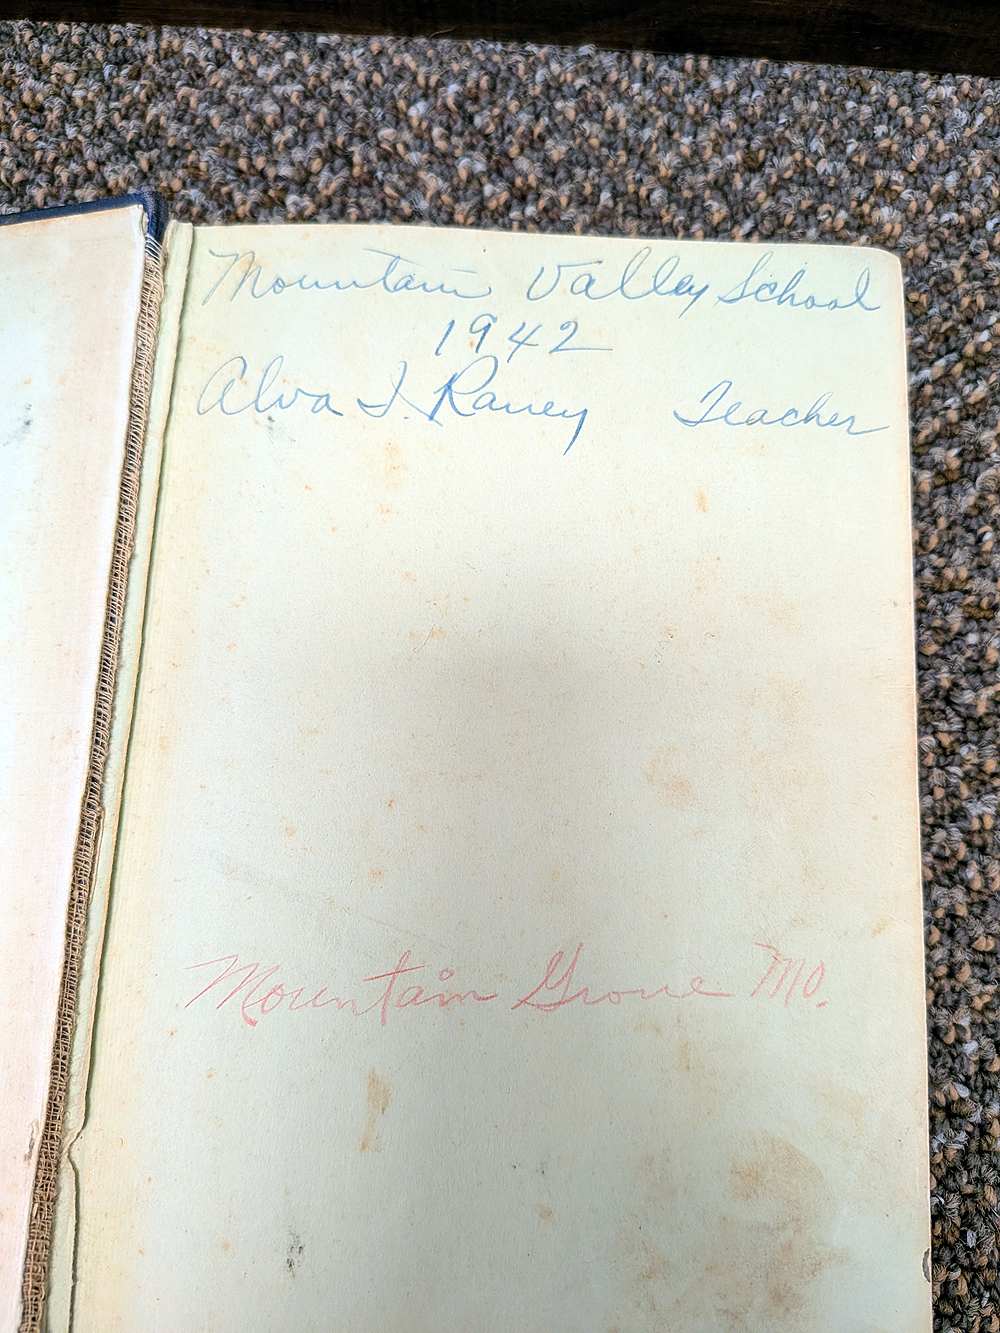 Mountain Valley School
1942
Alva I. Raney Teacher
Mountain Grove MO.